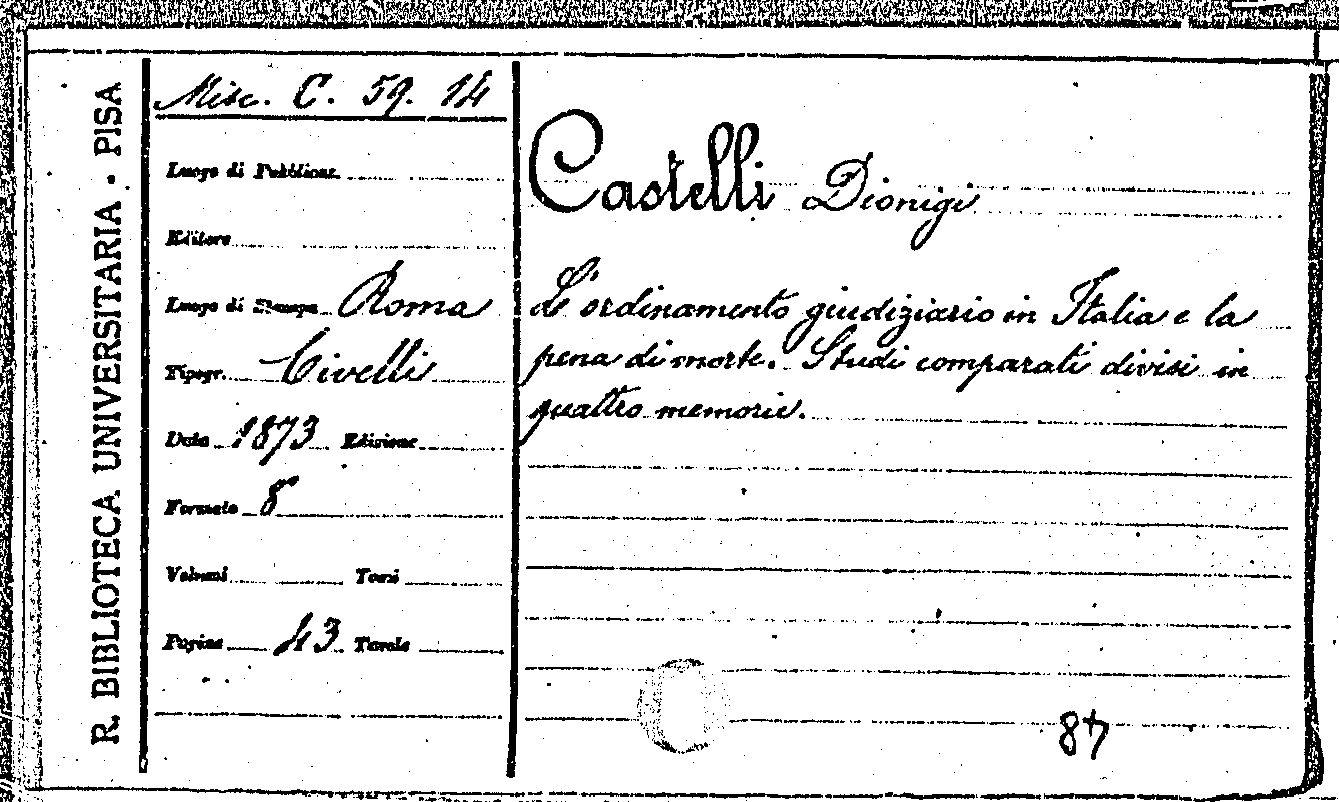 R. BIBLIOTECA UNIVERSITARIA - PISA
Misc. C. 59. 14
Luogo di Pubblicaz.
Editore
Luogo di Stampa Roma
Tipogr. Civelli
Data 1873 Edizione
Formato 8
Volumi Tomi
Pagine 43 Tavole
Castelli Dionigi
L'ordinamento giudiziario in Italia e la
pena di morte. Studi comparati divisi in
quattro memorie.
48